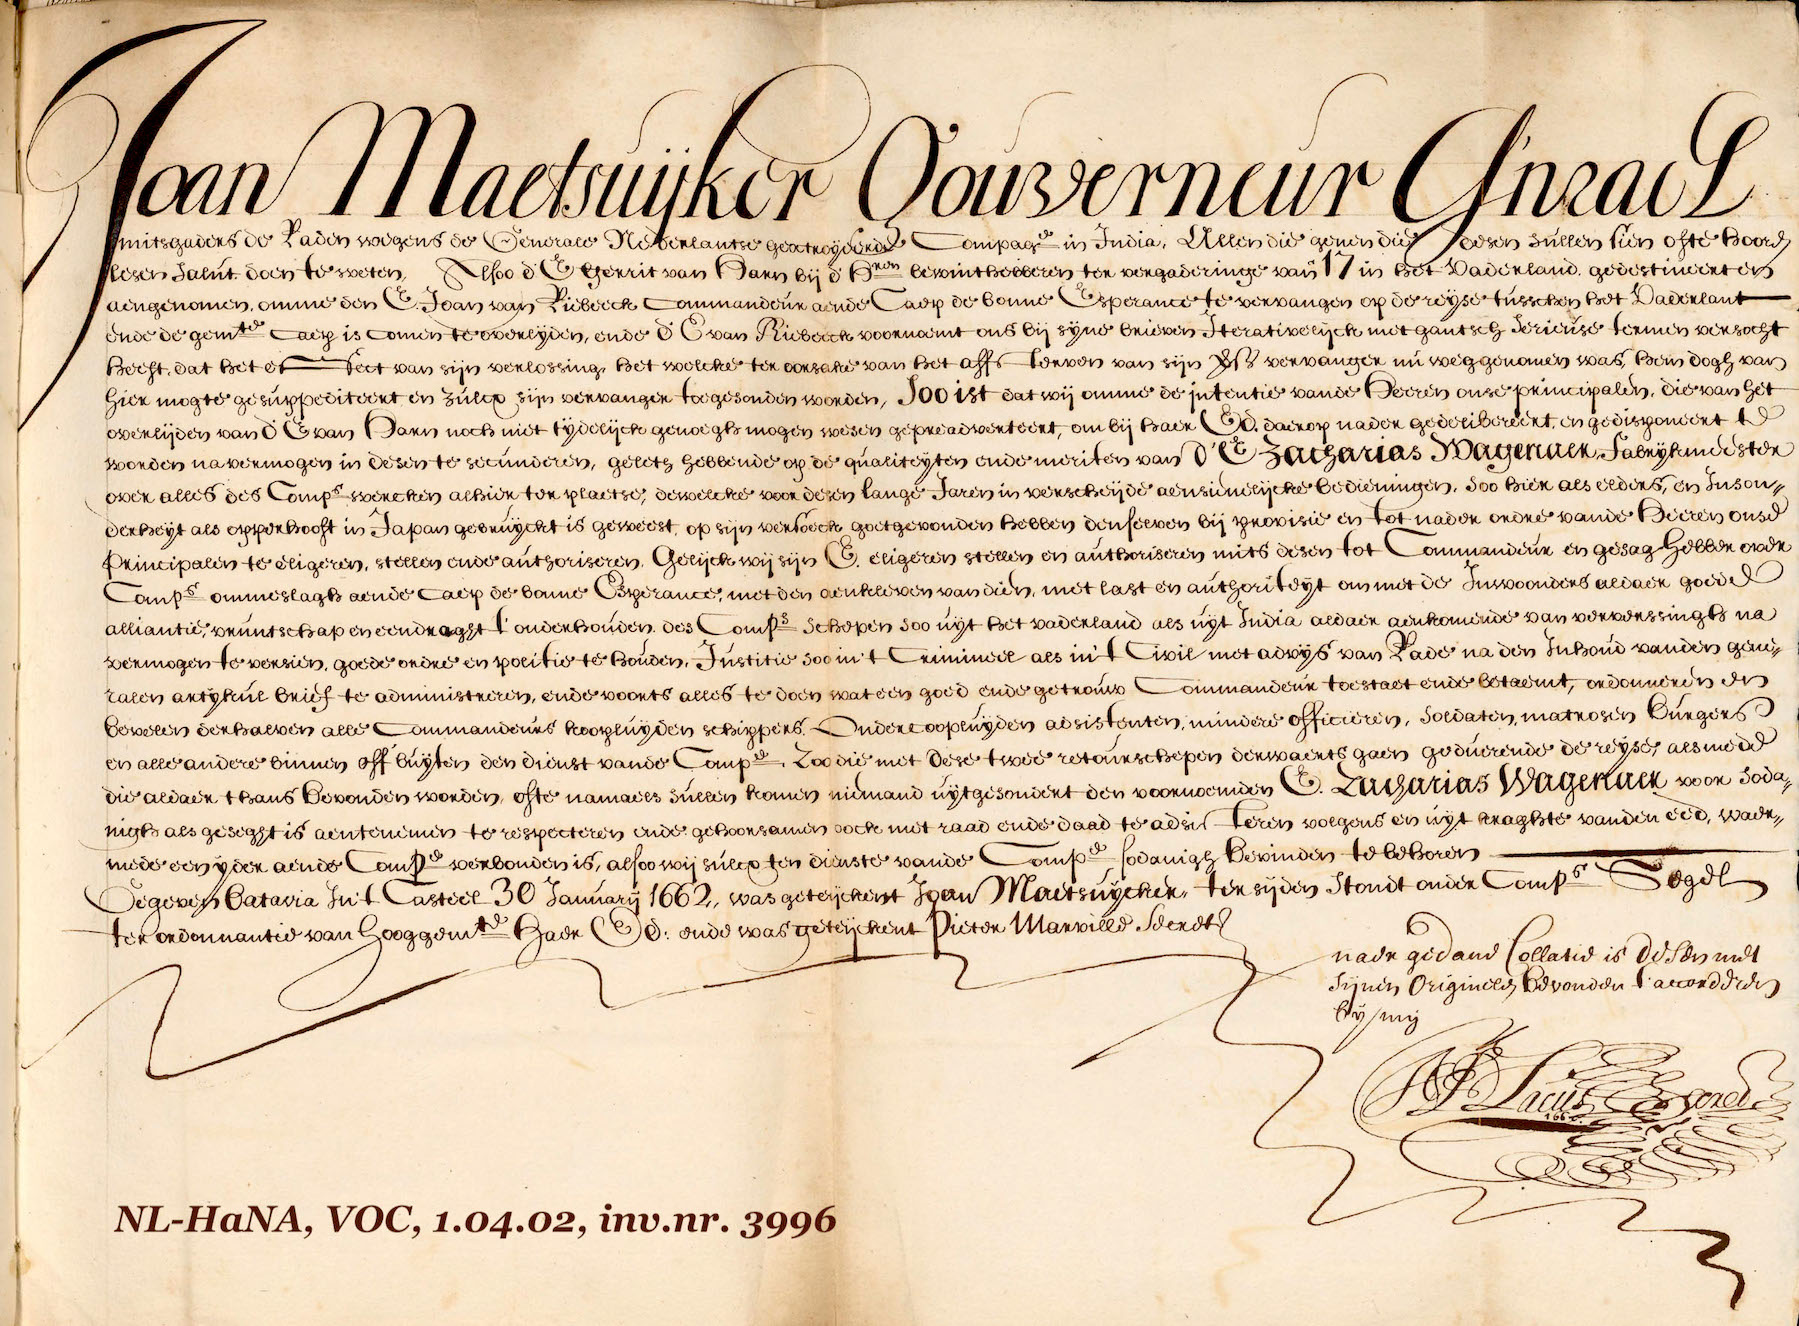 Joan Maetsuijker Gouverneur Gn̄rael
mitsgaders de Raden wegens de Generale Nederlantse geoctroyeerde Compagе in India, Allen die genen die desen sullen sien ofte hooren
lesen salut doen te weten, Alsoo d' E Gerrit van Harn bij d' Hren bewinthebberen ter vergaderinge van 17 in het Vaderland gedestineert en
aengenomen, omme den E. Joan van Riebeeck Commandeur aende Caep de bonne Esperance te vervangen op de reyse tusschen het Vaderlant
ende de gemte Caep is comen te overlyden, ende d' E van Riebeeck voornaemt ons bij syne brieven Iterativelijck met gantsch serieuse termen versocht
heeft, dat het effect van sijn verlossing, het welcke ter oorsake van het affsterven van sijn E vervanger nu weggenomen was, hem dogh van
hier mogte gesuppediteert en zulcx sijn vervanger toegesonden worden, Soo ist dat wij omme de intentie vande Heeren onse principalen, die van het
overlijden van d' E van Harn noch niet tydelijck genoegh mogen wesen gepreadverteert, om bij haer Ed. daerop nader gedelibereert, en gedisponeert te
worden na vermogen in desen te secunderen, geleth hebbende op de qualiteyten ende meriten van d' E Zacharias Wagenaer, Fabryckmeester
over alles des Comps wercken alhier ter plaetse, dewelcke voor desen lange Jaren in verscheijde aensienelijcke bedieningen, soo hier als elders, en Inson„
derheyt als opperhooft in Japan gebruyckt is geweest, op sijn versoeck goetgevonden hebben denselven bij provisie en tot nader ordre vande Heeren onse
Principalen te eligeren, stellen ende authoriseren, Gelijck wij sijn E. eligeren stellen en authoriseren mits desen tot Commandeur en gesag-Hebber over
Comps ommeslagh aende Caep de bonne Esperance, met den aencleven van dien, met last en authoriteyt om met de Inwoonders aldaer goede
alliantie, vruntschap en eendraght t' onderhouden. des Comps schepen soo uyt het vaderland als uyt India aldaer aenkomende van ververssingh na
vermogen te versien, goede ordre en politie te houden, Justitie soo in 't Crimineel als in 't Civil met advys van Rade na den Inhoud vanden gene„
ralen artykul brief te administreren, ende voorts alles te doen wat een goed ende getrouw Commandeur toestaet ende betaemt, ordonneren en
bevelen derhalven alle Commandeurs koopluyden schippers, Ondercoopluyden adsistenten, mindere officieren, soldaten, matrosen Burgers
en alle andere binnen off buyten den dienst vande Compe, Zoo die met dese twee retourschepen derwaerts gaen geduerende de reyse, als mede
die aldaer thans bevonden worden, ofte namaels sullen komen niemand uytgesondert den voornoemden E. Zacharias Wagenaer voor soda„
nigh als geseght is aentenemen te respecteren ende gehoorsamen oock met raad ende daad te adsisteren volgens en uyt kraghte vanden eed, waer„
mede een yder aende Compe verbonden is, alsoo wij sulcx ten dienste vande Compe sodanigh bevinden te behoren
Gegeven Batavia In 't Casteel 30 January 1662,, was geteijckent Joan Maetsuycker, ter sijden stondt onder Comps Segel
ter ordonnantie van hooggemte Haer Ed: ende was geteijckent Pieter Marville Secrets
naer gedane Collatie is desen met
sijnen Origineelen bevonden t' accorderen
by mij
Lacus Secret
1662
NL-HaNA, VOC, 1.04.02, inv.nr. 3996